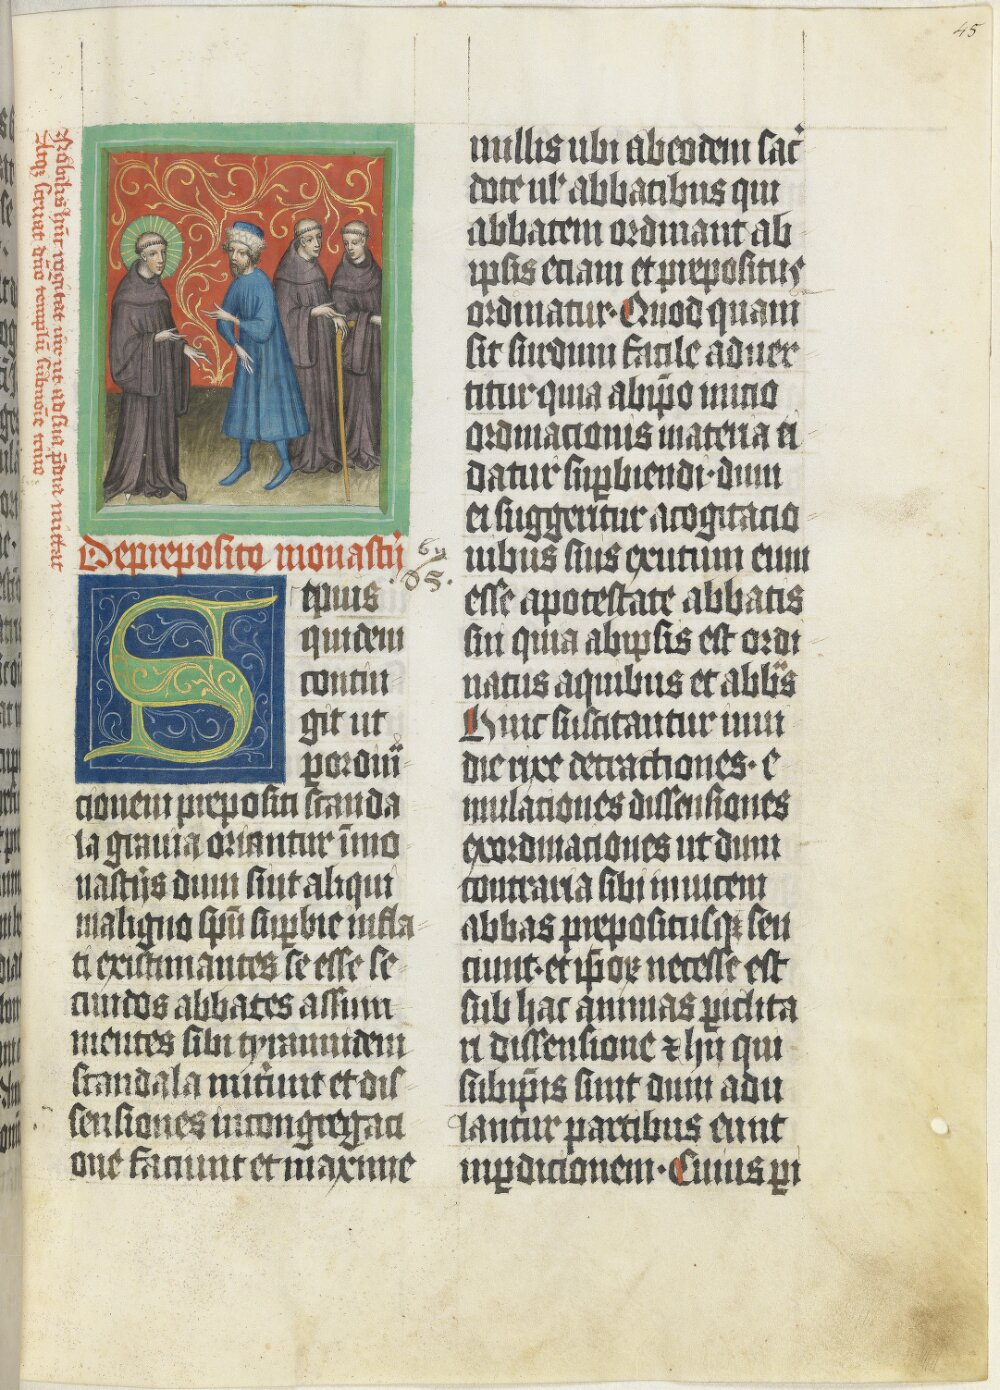 45
Nobilis hūc rogitat vir ut ad sua p̄dia mittat
Atqꝫ struat dn̄o templū sub noīe trine
De preposito monastīj
Sepius
quidem
contin
git ut
per ordinā
cionem prepositi scanda
la grauia oriantur ī mo
nastīis dum sint aliqui
maligno spū suꝑbie infla
ti existimantes se esse se
cundos abbates assum
mentes sibi tyrannidem
scandala nutriunt et dis
sensiones in congregaci
one faciunt et maxime
in illis ubi ab eodem sac̄
dote ul abbatibus qui
abbatem ordinant ab
ipsis etiam et prepositus
ordinatur. Quod quam
sit surdum facile aduer
titur quia ab ip̄o inicio
ordinacionis materia ei
datur suꝑbiendi. dum
ei suggeritur a cogitacio
nibus suis exutum eum
esse a potestate abbatis
sui quia ab ipsis est ordi
natus a quibus et abb̄s
Hinc suscitantur inui
die rixe detractiones. e
mulaciones dissensiones
exordinaciones ut dum
contraria sibi inuicem
abbas prepositusqꝫ sen
ciunt. et ip̄oꝝ necesse est
sub hac animas ꝑiclita
ri dissensione ⁊ hij qui
sub ip̄is sunt dum adu
lantur partibus eunt
in ꝑdicionem. Cuius ꝑi